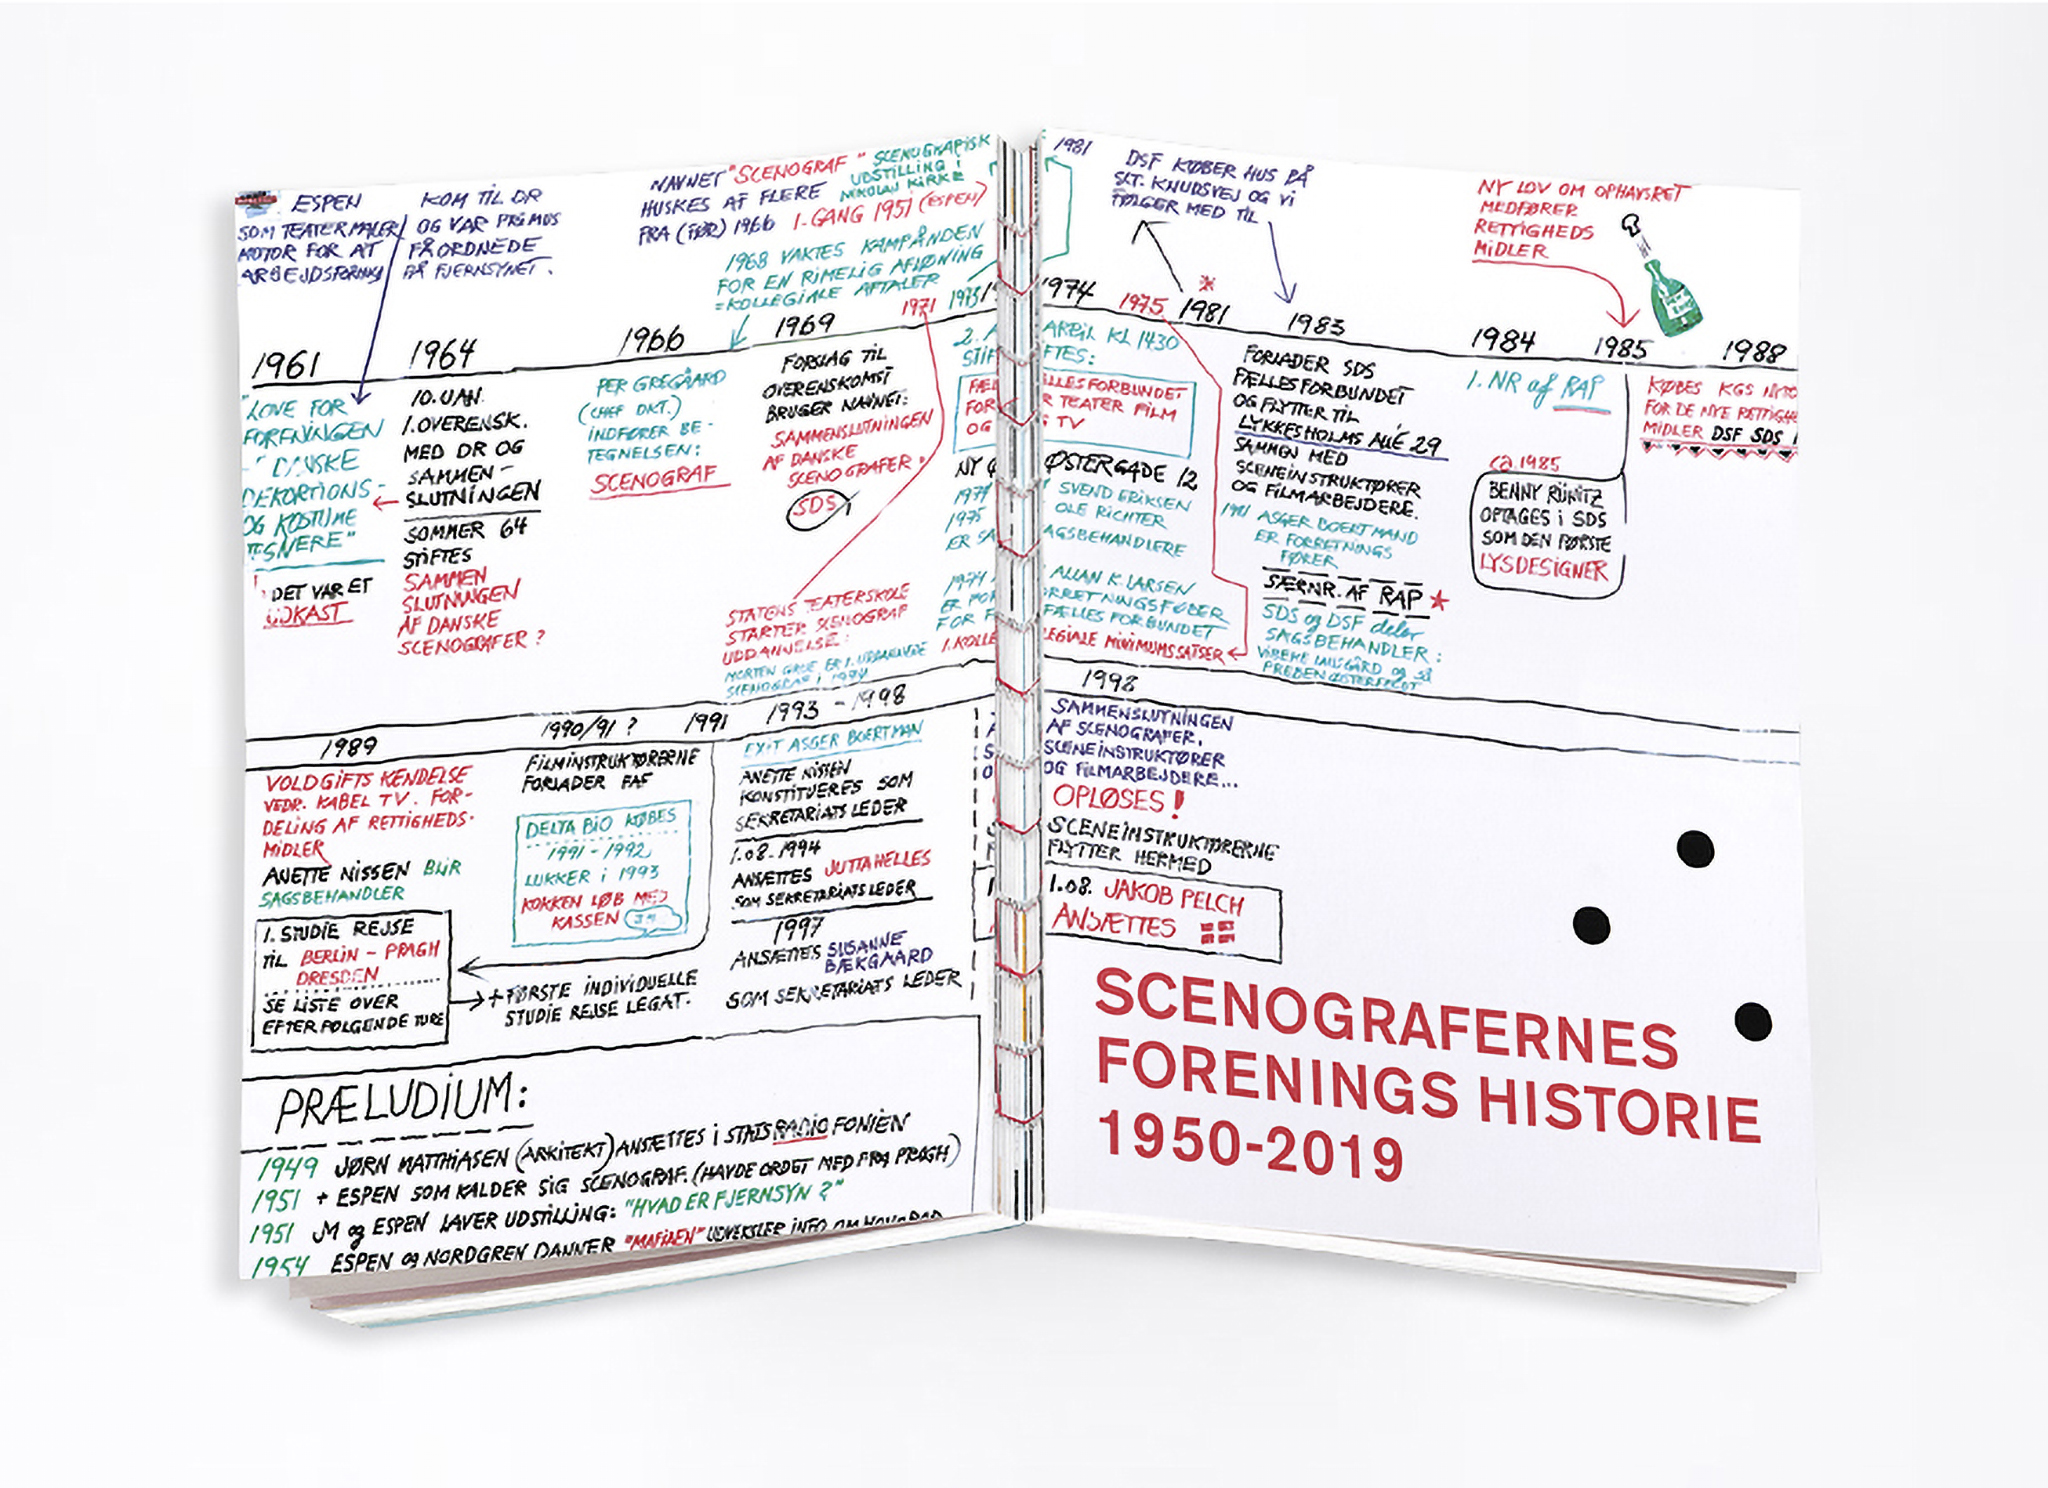 ESPEN
SOM TEATERMALER
MOTOR FOR AT
ARBEJDSFORHOLD
KOM TIL DR
OG VAR PRIMUS
FÅ ORDNEDE
PÅ FJERNSYNET.
NAVNET "SCENOGRAF"
HUSKES AF FLERE
FRA (FØR) 1966
SCENOGRAFISK
UDSTILLING I
NIKOLAJ KIRKE
1. GANG 1951 (ESPEN)
1968 VAKTES KAMPÅNDEN
FOR EN RIMELIG AFLØNING
= KOLLEGIALE AFTALER
1961
"LOVE FOR
FORENINGEN
"DANSKE
DEKORTIONS-
OG KOSTUME
TEGNERE"
DET VAR ET
UDKAST
1964
10. JAN.
1. OVERENSK.
MED DR OG
SAMMEN-
SLUTNINGEN
SOMMER 64
STIFTES
SAMMEN
SLUTNINGEN
AF DANSKE
SCENOGRAFER?
1966
PER GREGÅARD
(CHEF DKT.)
INDFØRER BE-
TEGNELSEN:
SCENOGRAF
1969
FORSLAG TIL
OVERENSKOMST
BRUGER NAVNET:
SAMMENSLUTNINGEN
AF DANSKE
SCENOGRAFER.
SDS
1971
STATENS TEATERSKOLE
STARTER SCENOGRAF
UDDANNELSE:
MORTEN GRUE ER 1. UDDANNEDE
SCENOGRAF I 1974
1973
1981
DSF KØBER HUS PÅ
SLT. KNUDSVEJ OG VI
FØLGER MED TIL
NY LOV OM OPHAVSRET
MEDFØRER
RETTIGHEDS
MIDLER
1974
APRIL KL 1430
FTES:
ELLESFORBUNDET
R TEATER FILM
G TV
ØSTERGADE 12
SVEND ERIKSEN
OLE RICHTER
AGSBEHANDLERE
ALLAN K. LARSEN
RRETNINGSFØRER
FÆLLES FORBUNDET
EGIALE MINIMUMSSATSER
1975
1981
1983
FORLADER SDS
FÆLLESFORBUNDET
OG FLYTTER TIL
LYKKESHOLMS ALLÉ 29
SAMMEN MED
SCENEINSTRUKTØRER
OG FILMARBEJDERE.
1981 ASGER BOERTMAND
ER FORRETNINGS
FØRER
SÆRNR. AF RAP
SDS og DSF deler
SAGSBEHANDLER:
1984
1. NR af RAP
ca. 1985
BENNY RÜNITZ
OPTAGES i SDS
SOM DEN FØRSTE
LYSDESIGNER
1985
1988
KØBES KGS NYTO
FOR DE NYE RETTIGHE
MIDLER DSF SDS
1989
VOLDGIFTS KENDELSE
VEDR. KABEL TV. FOR-
DELING AF RETTIGHEDS-
MIDLER
ANETTE NISSEN BLIR
SAGSBEHANDLER
1. STUDIE REJSE
TIL BERLIN - PRAGH
DRESDEN
SE LISTE OVER
EFTERFØLGENDE TURE
1990/91 ?
FILMINSTRUKTØRERNE
FORLADER FAF
DELTA BIO KØBES
1991 - 1992
LUKKER i 1993
KOKKEN LØB MED
KASSEN
+ FØRSTE INDIVIDUELLE
STUDIE REJSE LEGAT.
1991
1993 - 1998
EXIT ASGER BOERTMAN
ANETTE NISSEN
KONSTITUERES SOM
SEKRETARIATS LEDER
1.08.1994
ANSÆTTES JUTTA HELLES
SOM SEKRETARIATS LEDER
1997
ANSÆTTES SUSANNE
BÆKGAARD
SOM SEKRETARIATS LEDER
1998
SAMMENSLUTNINGEN
AF SCENOGRAFER,
SCENEINSTRUKTØRER
OG FILMARBEJDERE...
OPLØSES!
SCENEINSTRUKTØRERNE
FLYTTER HERMED
1.08. JAKOB PELCH
ANSÆTTES
PRÆLUDIUM:
1949 JØRN MATTHIASEN (ARKITEKT) ANSÆTTES I STATSRADIOFONIEN
1951 + ESPEN SOM KALDER SIG SCENOGRAF. (HAVDE ORDET MED FRA PRAGH)
1951 JM og ESPEN LAVER UDSTILLING: "HVAD ER FJERNSYN?"
1954 ESPEN og NORDGREN DANNER "MAFIAEN" UDVEKSLER INFO OM
SCENOGRAFERNES
FORENINGS HISTORIE
1950-2019